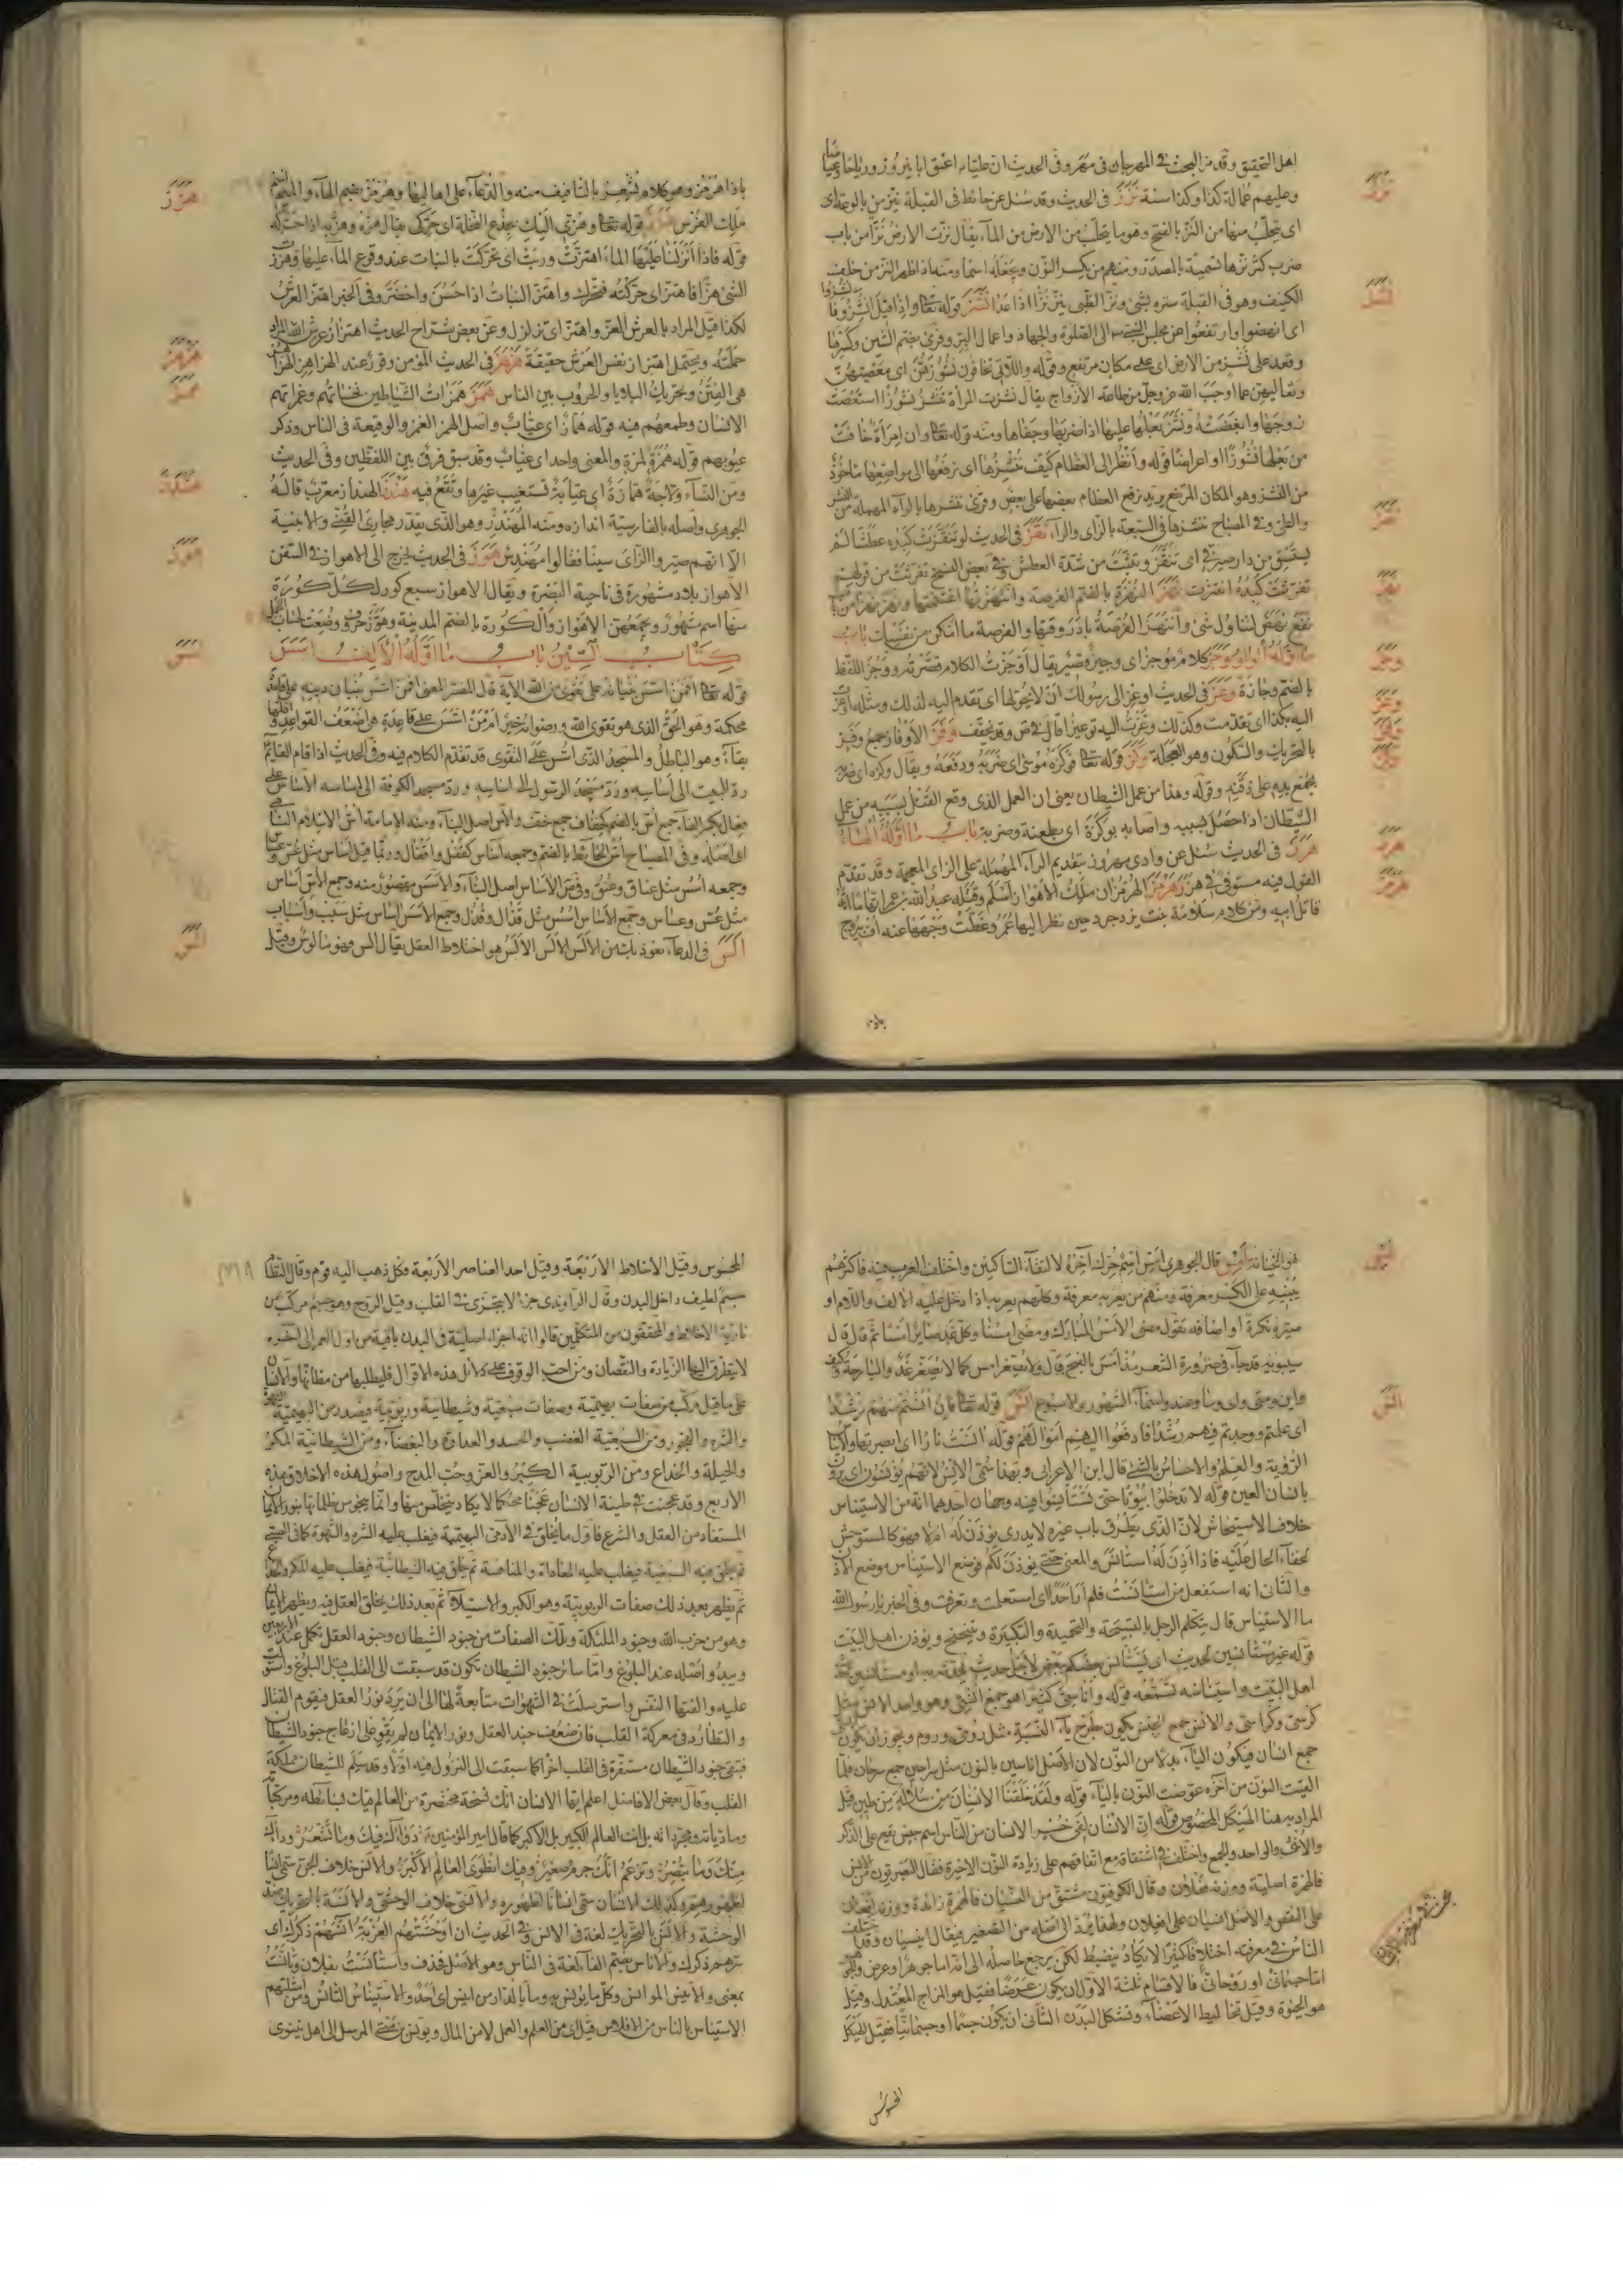 اهل التحقيق وقد مر البحث في المهرجان في مهر وفي الحديث ان عليا ع اعتق ابا نيروز ورياحا
وعليهم عمالة كذا وكذا سنة نزز في الحديث وقد سئل عن حائط في القبلة ينز من بالوعة اى
اى يتحلب منها من النز بالفتح وهو ما يتحلب من الارض من الماء يقال نزت الارض نزا من باب
ضرب كثر نزها تسمية بالمصدر ومنهم من يكسر النون ويجعله اسما ومنه اذا ظهر النز من خلف
الكنيف وهو في القبلة ستره بشئ ونز الظبى ينز نزا اذا عدا نشز قوله تعالى واذا قيل انشزوا
اى انهضوا وارتفعوا عن مجلس النبي الى الصلوة والجهاد واعمال البر وقرئ بضم الشين وكسرها
وقعد على نشز من الارض اى على مكان مرتفع وقوله واللاتى تخافون نشوزهن اى معصيتهن
وتعاليهن عما اوجب الله عز وجل من طاعة الازواج يقال نشزت المرأة تنشز نشوزا استعصت
زوجها وابغضته ونشز بعلها عليها اذا ضربها وجفاها ومنه قوله تعالى وان امرأة خافت
من بعلها نشوزا او اعراضا قوله وانظر الى العظام كيف ننشزها اى نرفعها الى مواضعها ماخوذ
من النشز وهو المكان المرتفع يريد نرفع العظام بعضها على بعض وقرئ ننشرها بالراء المهملة من النشر
والطى وفي المصباح ننشزها في السبعة بالزاى والراء نقز في الحديث لو تنقزت كبده عطشا لم
يستسق من دار صيرفى اى تنقز وتثبت من شدة العطش وفي بعض النسخ تفرثت من قولهم
تفرثت كبده انتثرت نهز النهزة بالضم الفرصة وانتهزتها اغتنمتها ونهز نهزا من باب
نفع نهض ليتناول شئ وانتهز الفرصة بادر وقتها والفرصة ما امكن من نفسك باب
ما اوله الواو وجز كلام موجز اى وجيز قصير يقال اوجزت الكلام قصرته ووجز اللفظ
بالضم وجازة وعز في الحديث اوعز الى رسولك ان لا يحولها اى تقدم اليه لذلك ومثله اوعزت
اليه بكذا اى تقدمت وكذلك وعزت اليه توعيزا قال في ص وقد يخفف وفز الاوفاز جمع وفز
بالتحريك والسكون وهو العجلة وكز قوله تعالى فوكزه موسى اى ضربه ودفعه ويقال وكزه اى ضربه
بجمع يده على ذقنه وقوله وهذا من عمل الشيطان يعنى ان العمل الذى وقع القتل بسببه من عمل
الشيطان اذا حصل بسببه واصابه بوكزة اى بطعنة وضربة باب ما اوله الهاء
هرز في الحديث سئل عن وادى مهروز بتقديم الراء المهملة على الزاى المعجمة وقد تقدم
القول فيه مستوفى في هزر هرمز الهرمزان ملك الاهواز اسلم وقتله عبد الله بن عمر اتهاما انه
قاتل ابيه ومن كلام سلامة بنت يزدجرد حين نظر اليها عمر وغطت وجهها عنه اف بيروج
نزز
نشز
نقز
نهز
وجز
وعز
وفز
وكز
هرز
هرمز
باذا هرمز وهو كلام فرس بالتافيف منه والدعاء على ابيها وهرمز بضم الهاء والميم
ملك الفرس هزز قوله تعالى وهزى اليك بجذع النخلة اى حركى يقال هزه وهز به اذا حركه
قوله فاذا انزلنا عليها الماء اهتزت وربت اى تحركت بالنبات عند وقوع الماء عليها وهززت
الشئ هزا فاهتز اى حركته فتحرك واهتز النبات اذا حسن واخضر وفي الخبر اهتز العرش
لكذا قيل المراد بالعرش العز واهتز اى تزلزل وعن بعض شراح الحديث اهتزاز عرش الله المراد
حملته ويحتمل اهتزاز نفس العرش حقيقة هزهز في الحديث المؤمن وقور عند الهزاهز الهزاهز
هى الفتن وتحريك البلايا والحروب بين الناس همز همزات الشياطين نخساتهم وغمزاتهم
الانسان وطمعهم فيه قوله هماز اى عياب واصل الهمز الغمز والوقيعة في الناس وذكر
عيوبهم قوله همزة لمزة والمعنى واحد اى عياب وقد سبق فرق بين اللفظين وفي الحديث
ومن النساء ولاجة همازة اى عيابة تستغيب غيرها وتقع فيه هندز الهنداز معرب قاله
الجوهرى واصله بالفارسية اندازه ومنه المهندز وهو الذى يقدر مجارى القنى والابنية
الا انهم صيروا الزاى سينا فقالوا مهندس هوز في الحديث يخرج الى الاهواز في السفن
الاهواز بلاد مشهورة في ناحية البصرة ويقال الاهواز سبع كور لكل كورة
منها اسم مشهور ويجمعهن الاهواز والكورة بالضم المدينة وهوز حروف وضعت لحساب
كتاب السين باب ما اوله الالف اسس
قوله تعالى افمن اسس بنيانه على تقوى من الله الآية قال المفسر المعنى افمن اسس بنيان دينه على قاعدة
محكمة وهو الحق الذى هو تقوى الله ورضوانه خير ام من اسس على قاعدة هى اضعف القواعد واقلها
بقاء وهو الباطل والمسجد الذى اسس على التقوى قد تقدم الكلام فيه وفي الحديث اذا قام القائم
رد البيت الى اساسه ورد مسجد الرسول الى اساسه ورد مسجد الكوفة الى اساسه الاساس على
فعال بكسر الفاء جمع اس بالضم كخفاف جمع خف والاس اصل البناء ومنه الامامة اس الاسلام النامى
اى اصله وفي المصباح اس الحائط بالضم وجمعه آساس كقفل واقفال وربما قيل اساس مثل عس وعساس
وجمعه اسس مثل عناق وعنق وفي ص الاساس اصل البناء والاسس مقصور منه وجمع الاس اساس
مثل عس وعساس وجمع الاساس اسس مثل قذال وقذل وجمع الاسس آساس مثل سبب واسباب
الس في الدعاء نعوذ بك من الالس الالس هو اختلاط العقل يقال الس فهو مالوس وقيل
هزز
هزهز
همز
هندز
هوز
اسس
الس
هو الخيانة امس قال الجوهرى امس اسم حرك آخره لالتقاء الساكنين واختلف العرب فيه فاكثرهم
يبنيه على الكسر معرفة ومنهم من يعربه معرفة وكلهم يعربه اذا دخل عليه الالف واللام او
صيره نكرة او اضافه تقول مضى الامس المبارك ومضى امسنا وكل غد صائر امسا ثم قال قال
سيبويه قد جاء في ضرورة الشعر مذ امس بالفتح قال ولا يصغر امس كما لا يصغر غد والبارحة وكيف
واين ومتى واى وما وعند واسماء الشهور والاسبوع انس قوله تعالى فان آنستم منهم رشدا
اى علمتم ووجدتم فيهم رشدا فادفعوا اليهم اموالهم قوله آنست نارا اى ابصرتها والايناس
الرؤية والعلم والاحساس بالشئ قال ابن الاعرابى وبهذا سمى الانس لانهم يؤنسون اى يرون
بانسان العين قوله لا تدخلوا بيوتا حتى تستأنسوا فيه وجهان احدهما انه من الاستيناس
خلاف الاستيحاش لان الذى يطرق باب غيره لا يدرى يؤذن له ام لا فهو كالمستوحش
لخفاء الحال عليه فاذا اذن له استأنس والمعنى حتى يؤذن لكم فوضع الاستيناس موضع الاذن
والثانى انه استفعل من استانست فلم ار احدا اى استعلمت وتعرفت وفي الخبر يا رسول الله
ما الاستيناس قال يتكلم الرجل بالتسبيحة والتحميدة والتكبيرة ويتنحنح ويؤذن اهل البيت
قوله غير مستأنسين لحديث اى يستأنس بعضكم بعض لاجل حديث يحدثه به او مستأنسين حديث
اهل البيت واستيناسه تسمعه قوله واناسى كثيرا هو جمع انسى وهو واحد الانس مثل
كرسى وكراسى والانس جمع الجنس يكون بطرح ياء النسبة مثل رومى وروم ويجوز ان يكون
جمع انسان فيكون الياء بدلا من النون لان الاصل اناسين بالنون مثل سراحين جمع سرحان فلما
القيت النون من آخره عوضت النون بالياء قوله ولقد خلقنا الانسان من سلالة من طين قيل
المراد به هنا الهيكل المخصوص قوله ان الانسان لفى خسر الانسان من الناس اسم جنس يقع على الذكر
والانثى والواحد والجمع واختلف في اشتقاقه مع اتفاقهم على زيادة النون الاخيرة فقال البصريون من الانس
فالهمزة اصلية ووزنه فعلان وقال الكوفيون مشتق من النسيان فالهمزة زائدة ووزنه افعان
على النقص والاصل انسيان على افعلان ولهذا يرد الى اصله من التصغير فيقال انيسيان وقد اختلف
الناس في معرفته اختلافا كثيرا لا يكاد ينضبط لكن يرجع حاصله الى انه اما جوهر او عرض والجوهر
اما جسمانى او روحانى فالاقسام ثلثة الاول ان يكون عرضا فقيل هو المزاج المعتدل وقيل
هو الحيوة وقيل تخاليط الاعضاء وتشكل البدن الثانى ان يكون جسما او جسمانيا فقيل الهيكل
امس
انس
المحسوس
المحسوس وقيل الاخلاط الاربعة وقيل احد العناصر الاربعة فكل ذهب اليه قوم وقال النظام
جسم لطيف داخل البدن وقال الراوندى جزء لا يتجزى في القلب وقيل الروح وهو جسم مركب من
نارية الاخلاط والمحققون من المتكلمين قالوا انه اجزاء اصلية في البدن باقية من اول العمر الى آخره
لا يتطرق اليها الزيادة والنقصان ومن احب الوقوف على دلائل هذه الاقوال فليطلبها من مظانها والانسان
على ما قيل مركب من صفات بهيمية وصفات سبعية وشيطانية وربوبية فيصدر من البهيمية الشهوة
والشره والفجور ومن السبعية الغضب والحسد والعداوة والبغضاء ومن الشيطانية المكر
والحيلة والخداع ومن الربوبية الكبر والعز وحب المدح واصول هذه الاخلاق هذه
الاربع وقد عجنت في طينة الانسان عجنا محكما لا يكاد يتخلص منها وانما ينجو من ظلماتها بنور الايمان
المستفاد من العقل والشرع فاول ما يخلق في الآدمى البهيمية فيغلب عليه الشره والشهوة كما في الصبى
ثم يخلق فيه السبعية فيغلب عليه المعاداة والمنافسة ثم يخلق فيه الشيطانية فيغلب عليه المكر والخداع
ثم يظهر بعد ذلك صفات الربوبية وهو الكبر والاستيلاء ثم بعد ذلك يخلق العقل فيه ويظهر الايمان
وهو من حزب الله وجنود الملئكة وتلك الصفات من جنود الشيطان وجنود العقل تكمل عند الاربعين
ويبدو اصله عند البلوغ واما سائر جنود الشيطان تكون قد سبقت الى القلب قبل البلوغ واستولت
عليه والفتها النفس واسترسلت في الشهوات متابعة لها الى ان يرد نور العقل فيقوم القتال
والتطارد في معركة القلب فان ضعف جند العقل ونور الايمان لم يقو على ازعاج جنود الشيطان
فتبقى جنود الشيطان مستقرة في القلب آخرا كما سبقت الى النزول فيه اولا وقد سلم للشيطان مملكة
القلب وقال بعض الافاضل اعلم ايها الانسان انك نسخة مختصرة من العالم فيك بسائطه ومركباته
وماديات ومجرداته بل انت العالم الكبير بل الاكبر كما قال امير المؤمنين ع دواؤك فيك وما تشعر وداؤك
منك وما تبصر وتزعم انك جرم صغير وفيك انطوى العالم الاكبر والانس خلاف الجن سمى انسا
لظهورهم وكذلك الانسان سمى انسانا لظهوره والانسى خلاف الوحشى والانسة بالتحريك ضد
الوحشة والانس بالتحريك لغة في الانس وفي الحديث ان اوحشتهم الغربة آنسهم ذكرك اى
سرهم ذكرك والاناس بضم الفاء لغة في الناس وهو الاصل فحذف واستانست بفلان وتانست
بمعنى والانيس الموانس وكل ما يؤنس به وما بالدار من انيس اى احد والاستيناس التانس ومن امثلتهم
الاستيناس بالناس من الافلاس قيل اى من العلم والعمل لا من المال ويونس بن متى المرسل الى اهل نينوى